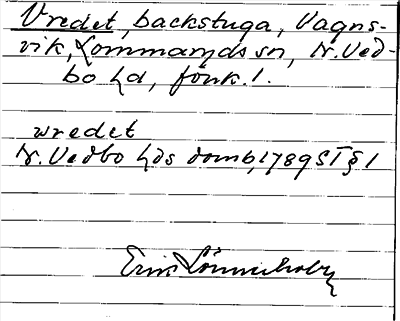 Vredet, backstuga, Vagns-
vik, Lommaryds sn, N. Ved-
bo hd, Jönk. l.
wredet
N. Vedbo hds domb, 1789 ST § 1
Erik Lönnerholm